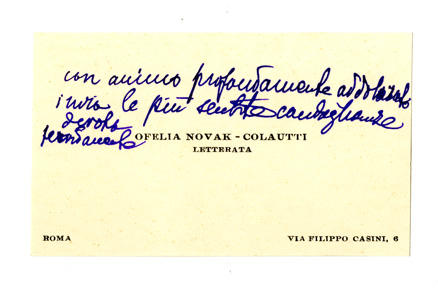 con animo profondamente addolorato
invia le più sentite condoglianze
devota
OFELIA NOVAK - COLAUTTI
LETTERATA
ROMA
VIA FILIPPO CASINI, 6